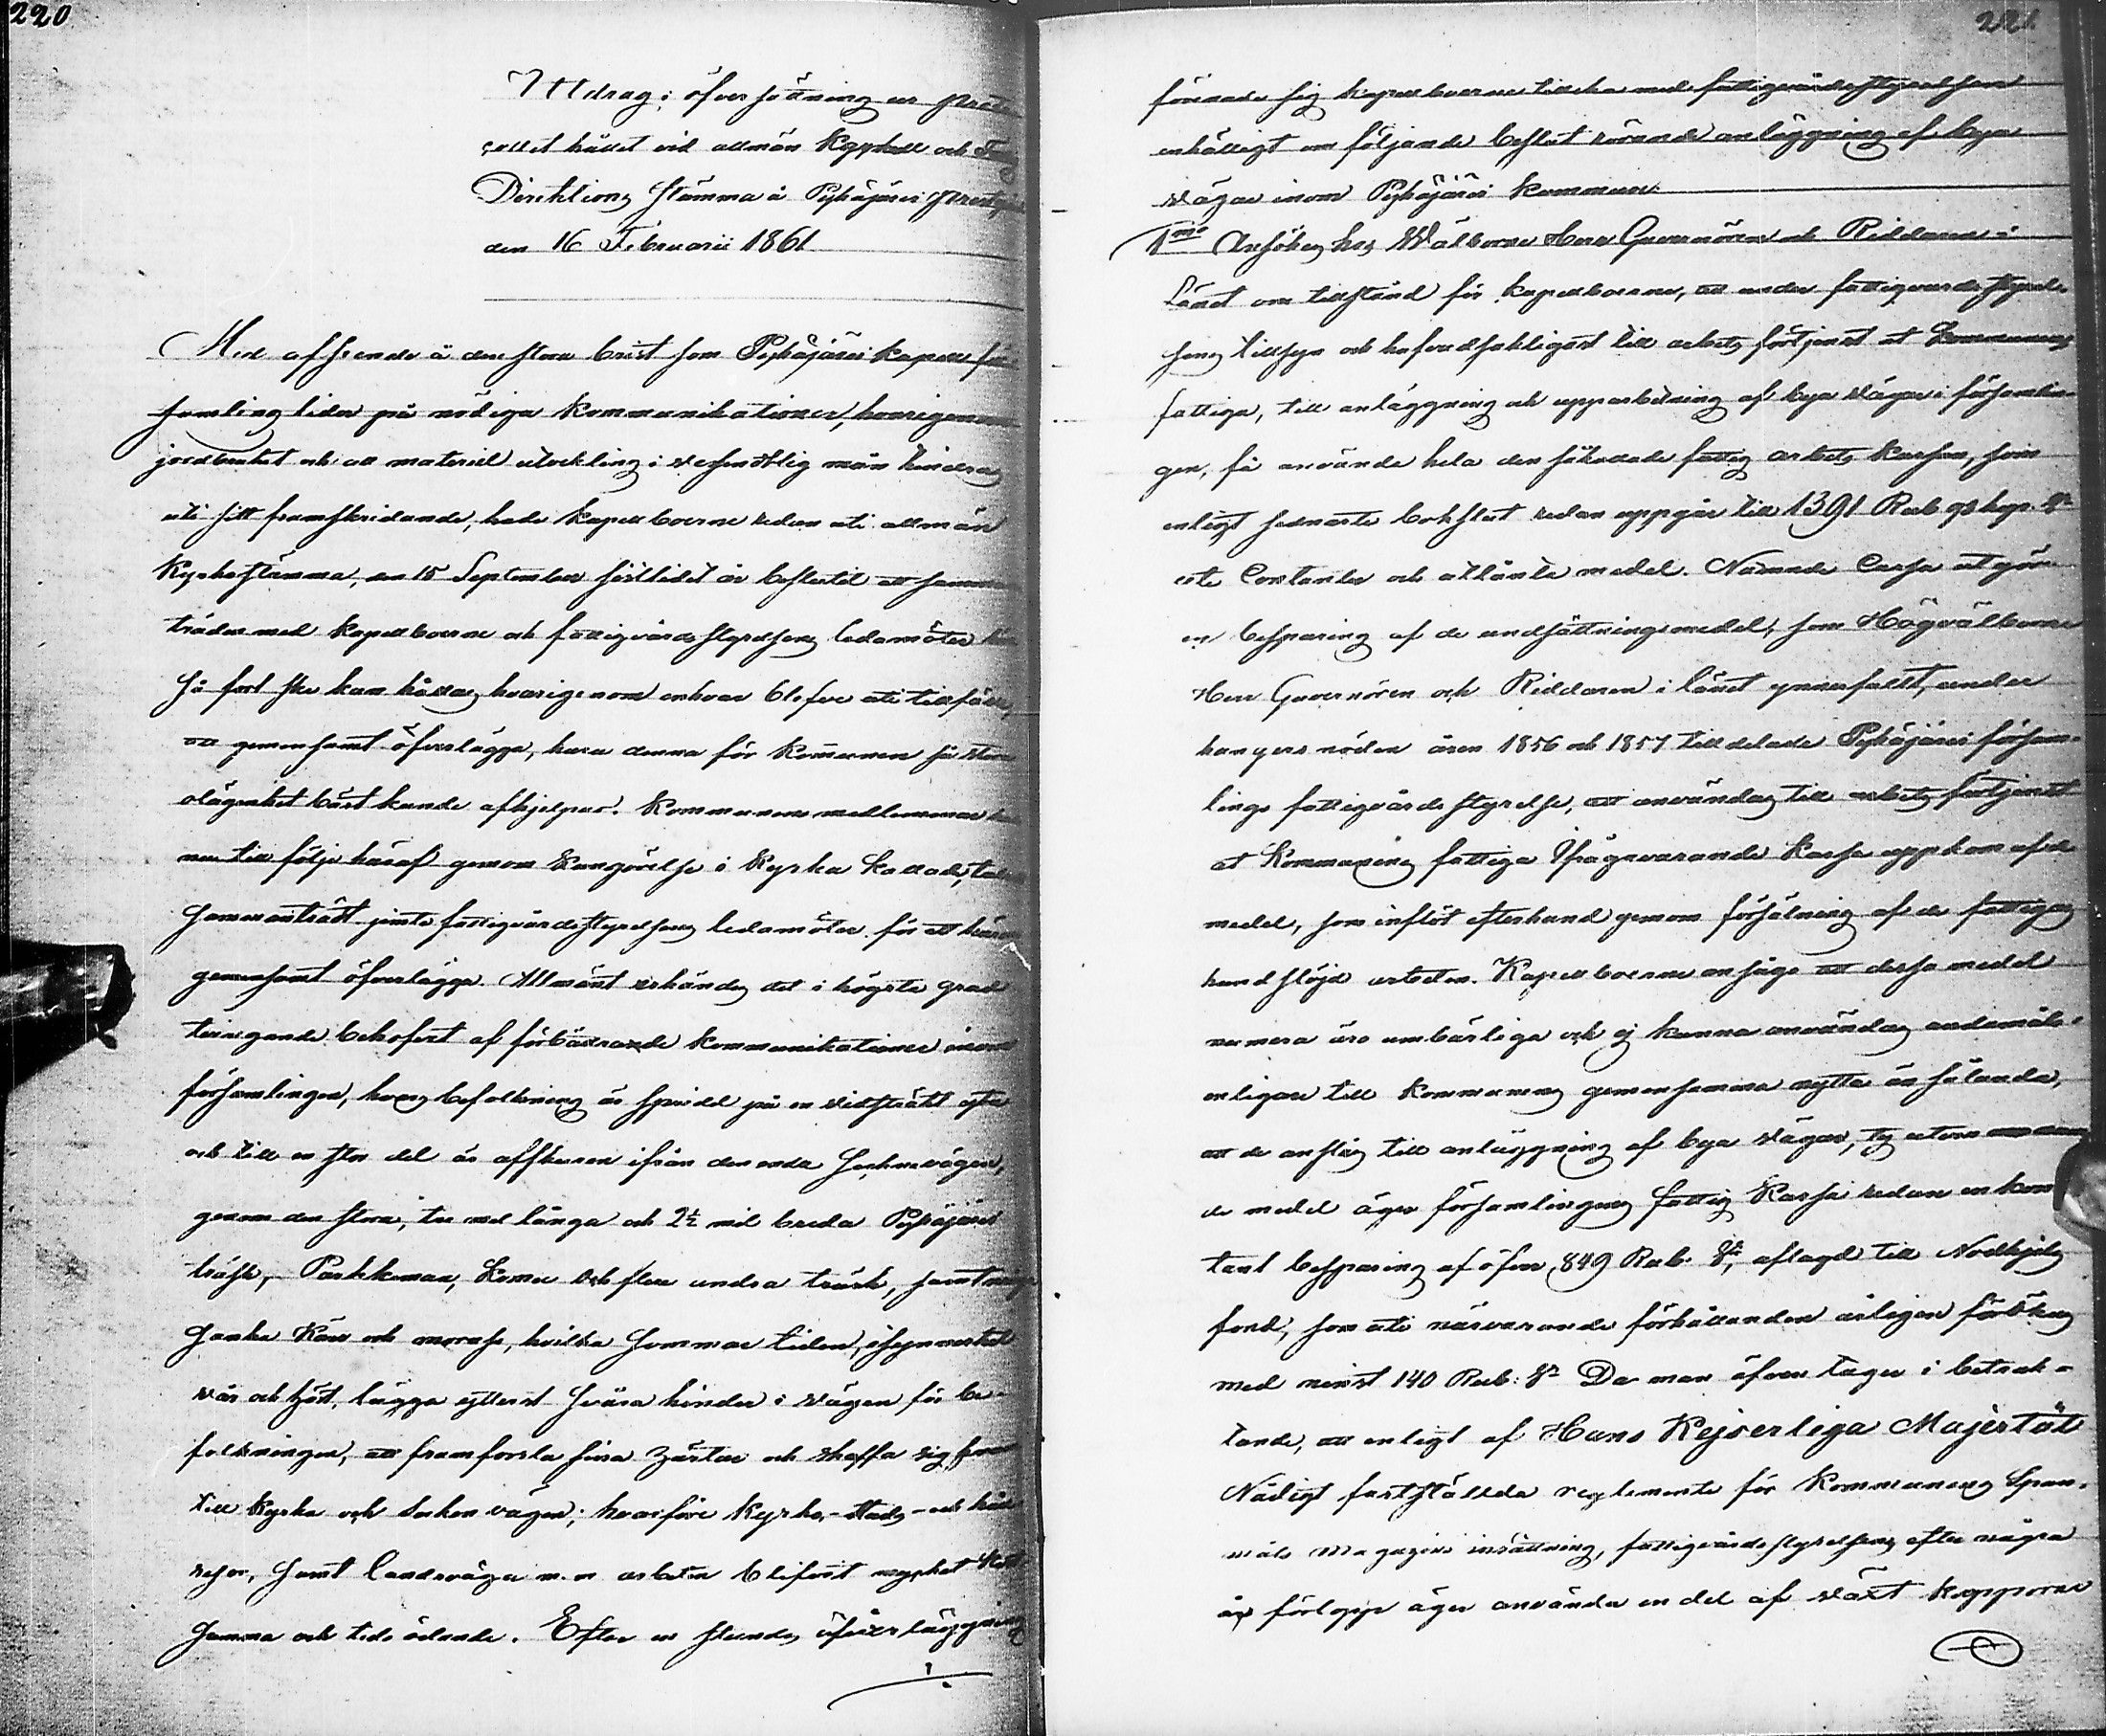 220
Utdrag i öfversättning ur Proto-
collet hållet vid allmän Kyrko och
Direktions stämma å Pyhäjärvi Prestgård
den 16 Februarii 1861
Med afseende å den stora brist som Pyhäjärvi kapell för-
samling lider på nödiga kommunikationer, hvarigenom
jordbruket och all materiel utveckling i väsendtlig mån hindras
uti sitt framskridande, hade kapellboerne redan uti allmän
Kyrkostämma, den 15 September sistlidet år beslutit att samman
träda med kapellboerne och fattigvårdsstyrelsens ledamöter
så fort ske kan hållas hvarigenom enhvar blefve uti tillfälle,
att gemensamt öfverlägga, huru denna för kommunen så stora
olägenhet bäst kunde afhjelpas. Kommunens medlemmar
nu till följe häraf genom kungörelse i Kyrka kallade,
sammanträdt jemte fattigvårdsstyrelsens ledamöter för att härom
gemensamt öfverlägga. Allmänt erkändes det i högsta grad
tvingande behofvet af förbättrande kommunikationer inom
församlingen, hvars befolkning är spridd på en vidsträckt yta
och till en stor del är afskuren ifrån den enda sockne vägen,
genom den stora, tre mil långa och 2½ mil breda Pyhäjärvi
träsk, Parkkima, Komu och flera andra träsk, samt många
sanka Kärr och morass, hvilka sommar tiden, i synnerhet
vår och höst, lägga ytterst svåra hinder i vägen för be-
folkningen, att framforsla sina zartar och skaffa sig fram
till Kyrka och socken vägen; hvarföre kyrko- stads- och håll
resor, samt landsväga m.m arbeten blifvit mycket kost
samma och tids ödande. Efter en stunds öfverläggning
221
förenade sig kapellboerne tillika med fattigvårdsstyrelsen
enhälligt om följande beslut rörande anläggning af bya
vägar inom Pyhäjärvi kommun.
1mo Ansökes hos Wälborne Herr Guvernören och Riddaren i
Länet om tillstånd för kapellboerne, att under fattigvårdsstyrel-
sens tillsyn och hufvudsakligast till arbets förtjenst åt kommunens
fattiga, till anläggning och upparbetning af bya vägar i församlin-
gen, få använda hela den såkallade fattig arbets kassan, som
enligt sednaste bokslut redan uppgår till 1391 Rub 98 kop. Sr
uti Contanta och utlånta medel. Nämnde Cassa utgör
en besparing af de undsättningsmedel, som Högvälborne
Herr Guvernören och Riddaren i länet ynnestfullt, under
hungersnöden åren 1856 och 1857 tilldelade Pyhäjärvi försam-
lings fattigvårds styrelse, att användas till arbets förtjenst
åt Kommunens fattiga. Ifrågavarande kassa uppkom af de
medel, som inflöt efterhand genom försäljning af de fattigas
handslöjd arbeten. Kapellboerne ansågo att dessa medel
numera äro umbärliga och ej kunna användas ändamåls-
enligare till Kommunens gemensamma nytta än sålunda,
att de anslås till anläggning af bya vägar, ty utom
de medel äger församlingens fattig Kassa redan en kon
tant besparing af öfver 849 Rub. Sr, aflagd till Nödhjelps
fond, som uti närvarande förhållanden årligen förökas
med minst 140 Rub: Sr Da man äfven tager i betrak-
tande, att enligt af Hans Kejserliga Majestät
Nådigt fastställda reglemente för Kommunens Span-
måls Magazins inrättning, fattigvårdsstyrelsens efter några
års förlopp äger använda en del af växt kapporne